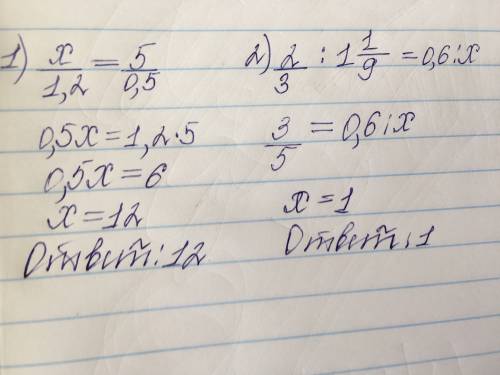 1) x/1,2 = 5/0,5
0,5x = 1,2·5
0,5x = 6
x = 12
Ответ: 12
2) 2/3 : 1 1/9 = 0,6 : x
3/5 = 0,6 : x
x = 1
Ответ: 1